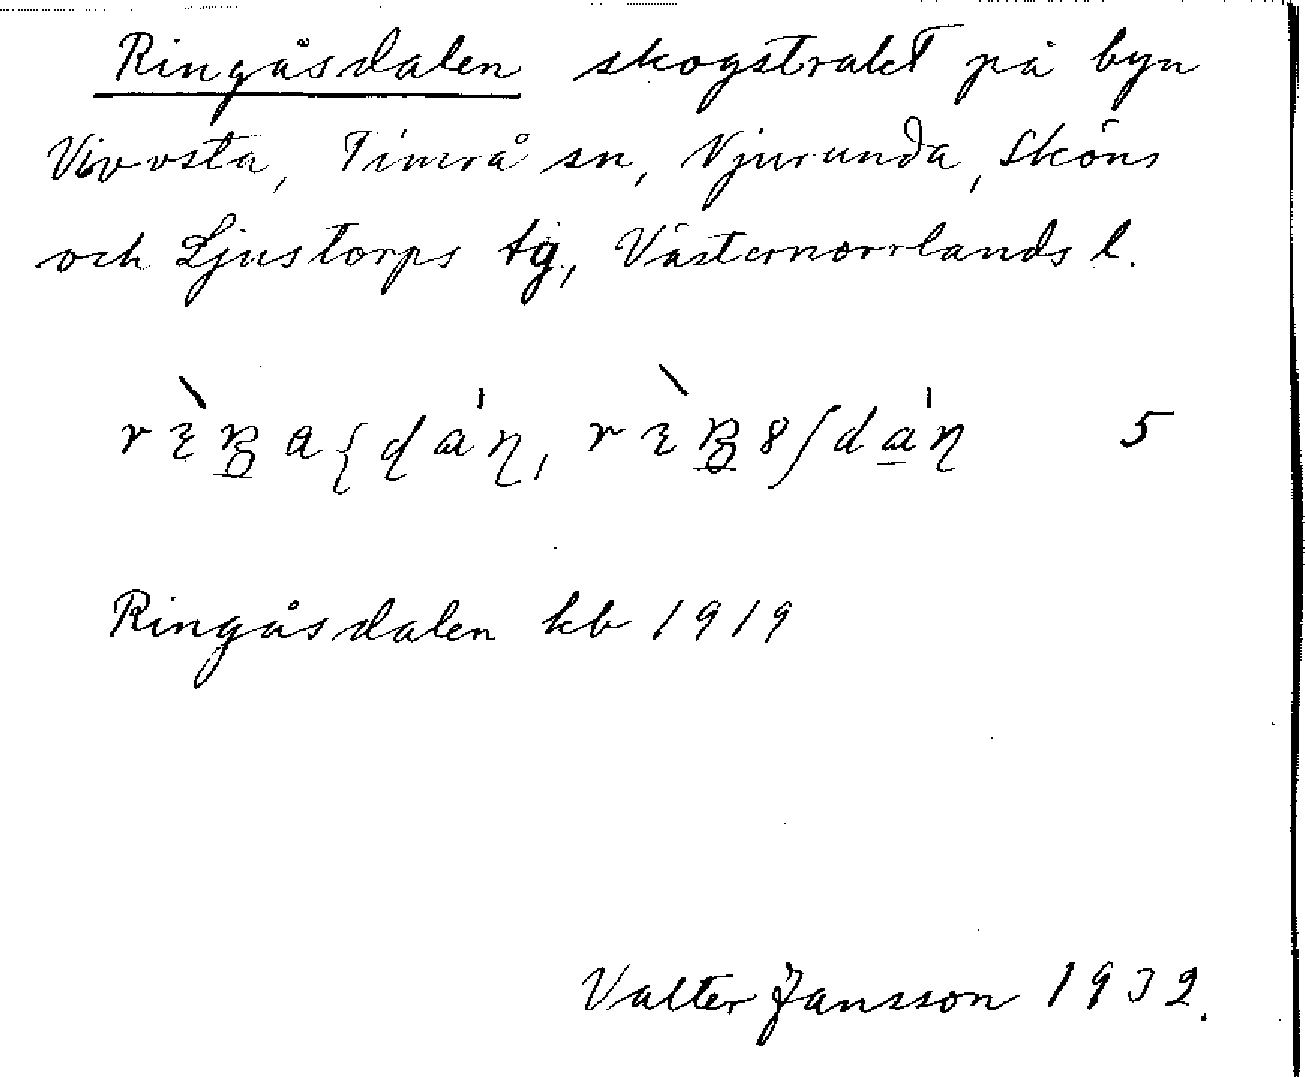 Ringåsdalen skogstrakt på byn
Vivsta, Timrå sn, Njurunda, Sköns
och Ljustorps tg, Västernorrlands l.
5
Ringåsdalen kb 1919
Valter Jansson 1932.